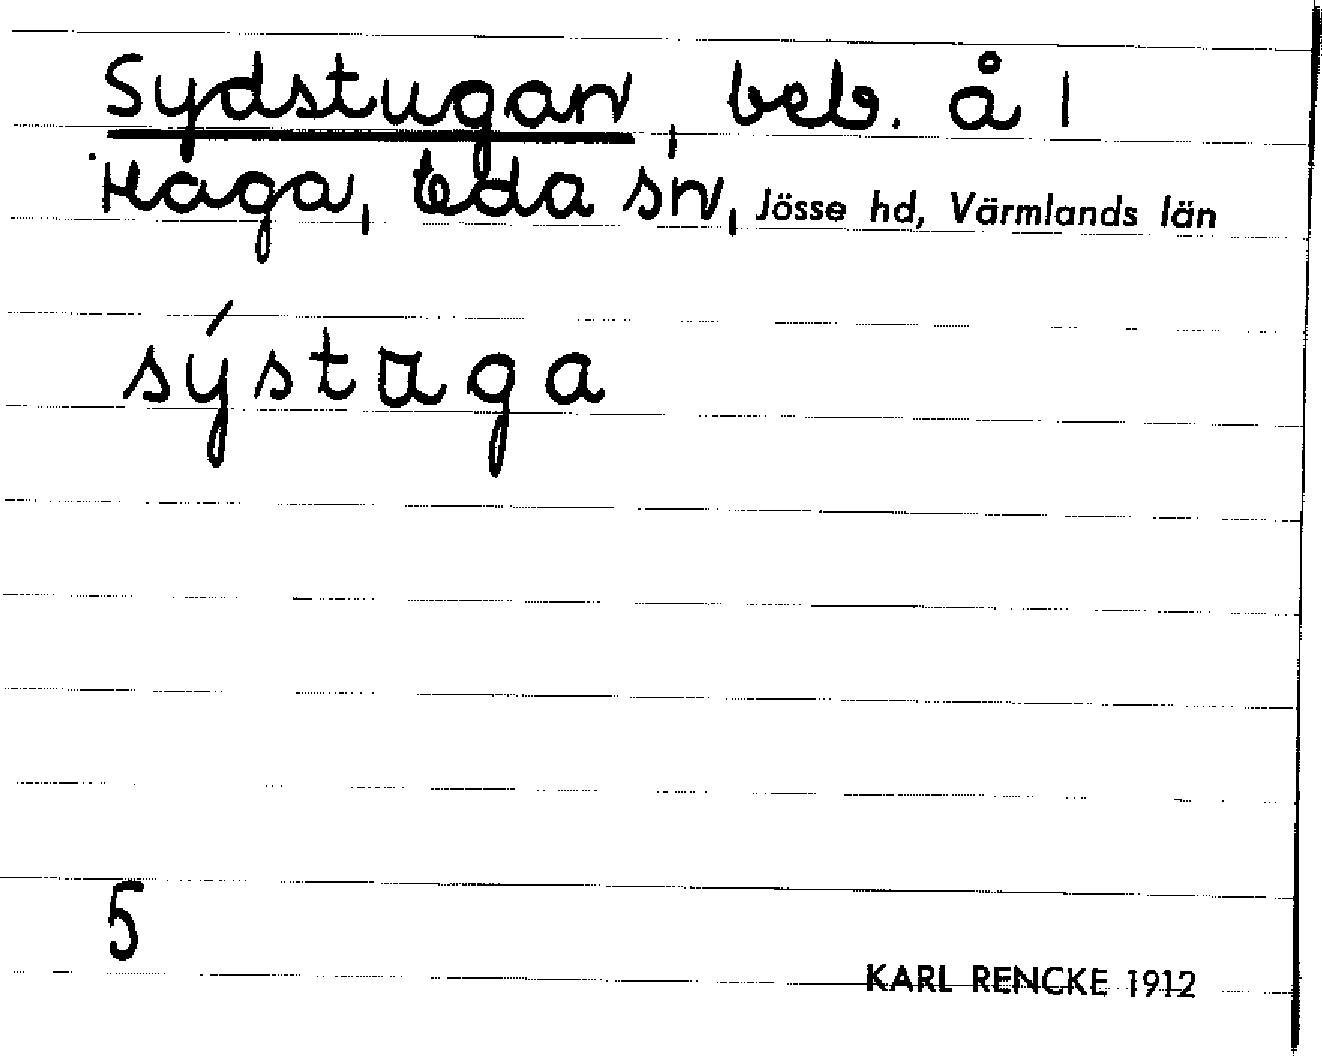 Sydstugan, beb. å 1
Haga, Eda sn, Jösse hd, Värmlands län
sýstaga
5
KARL RENCKE 1912